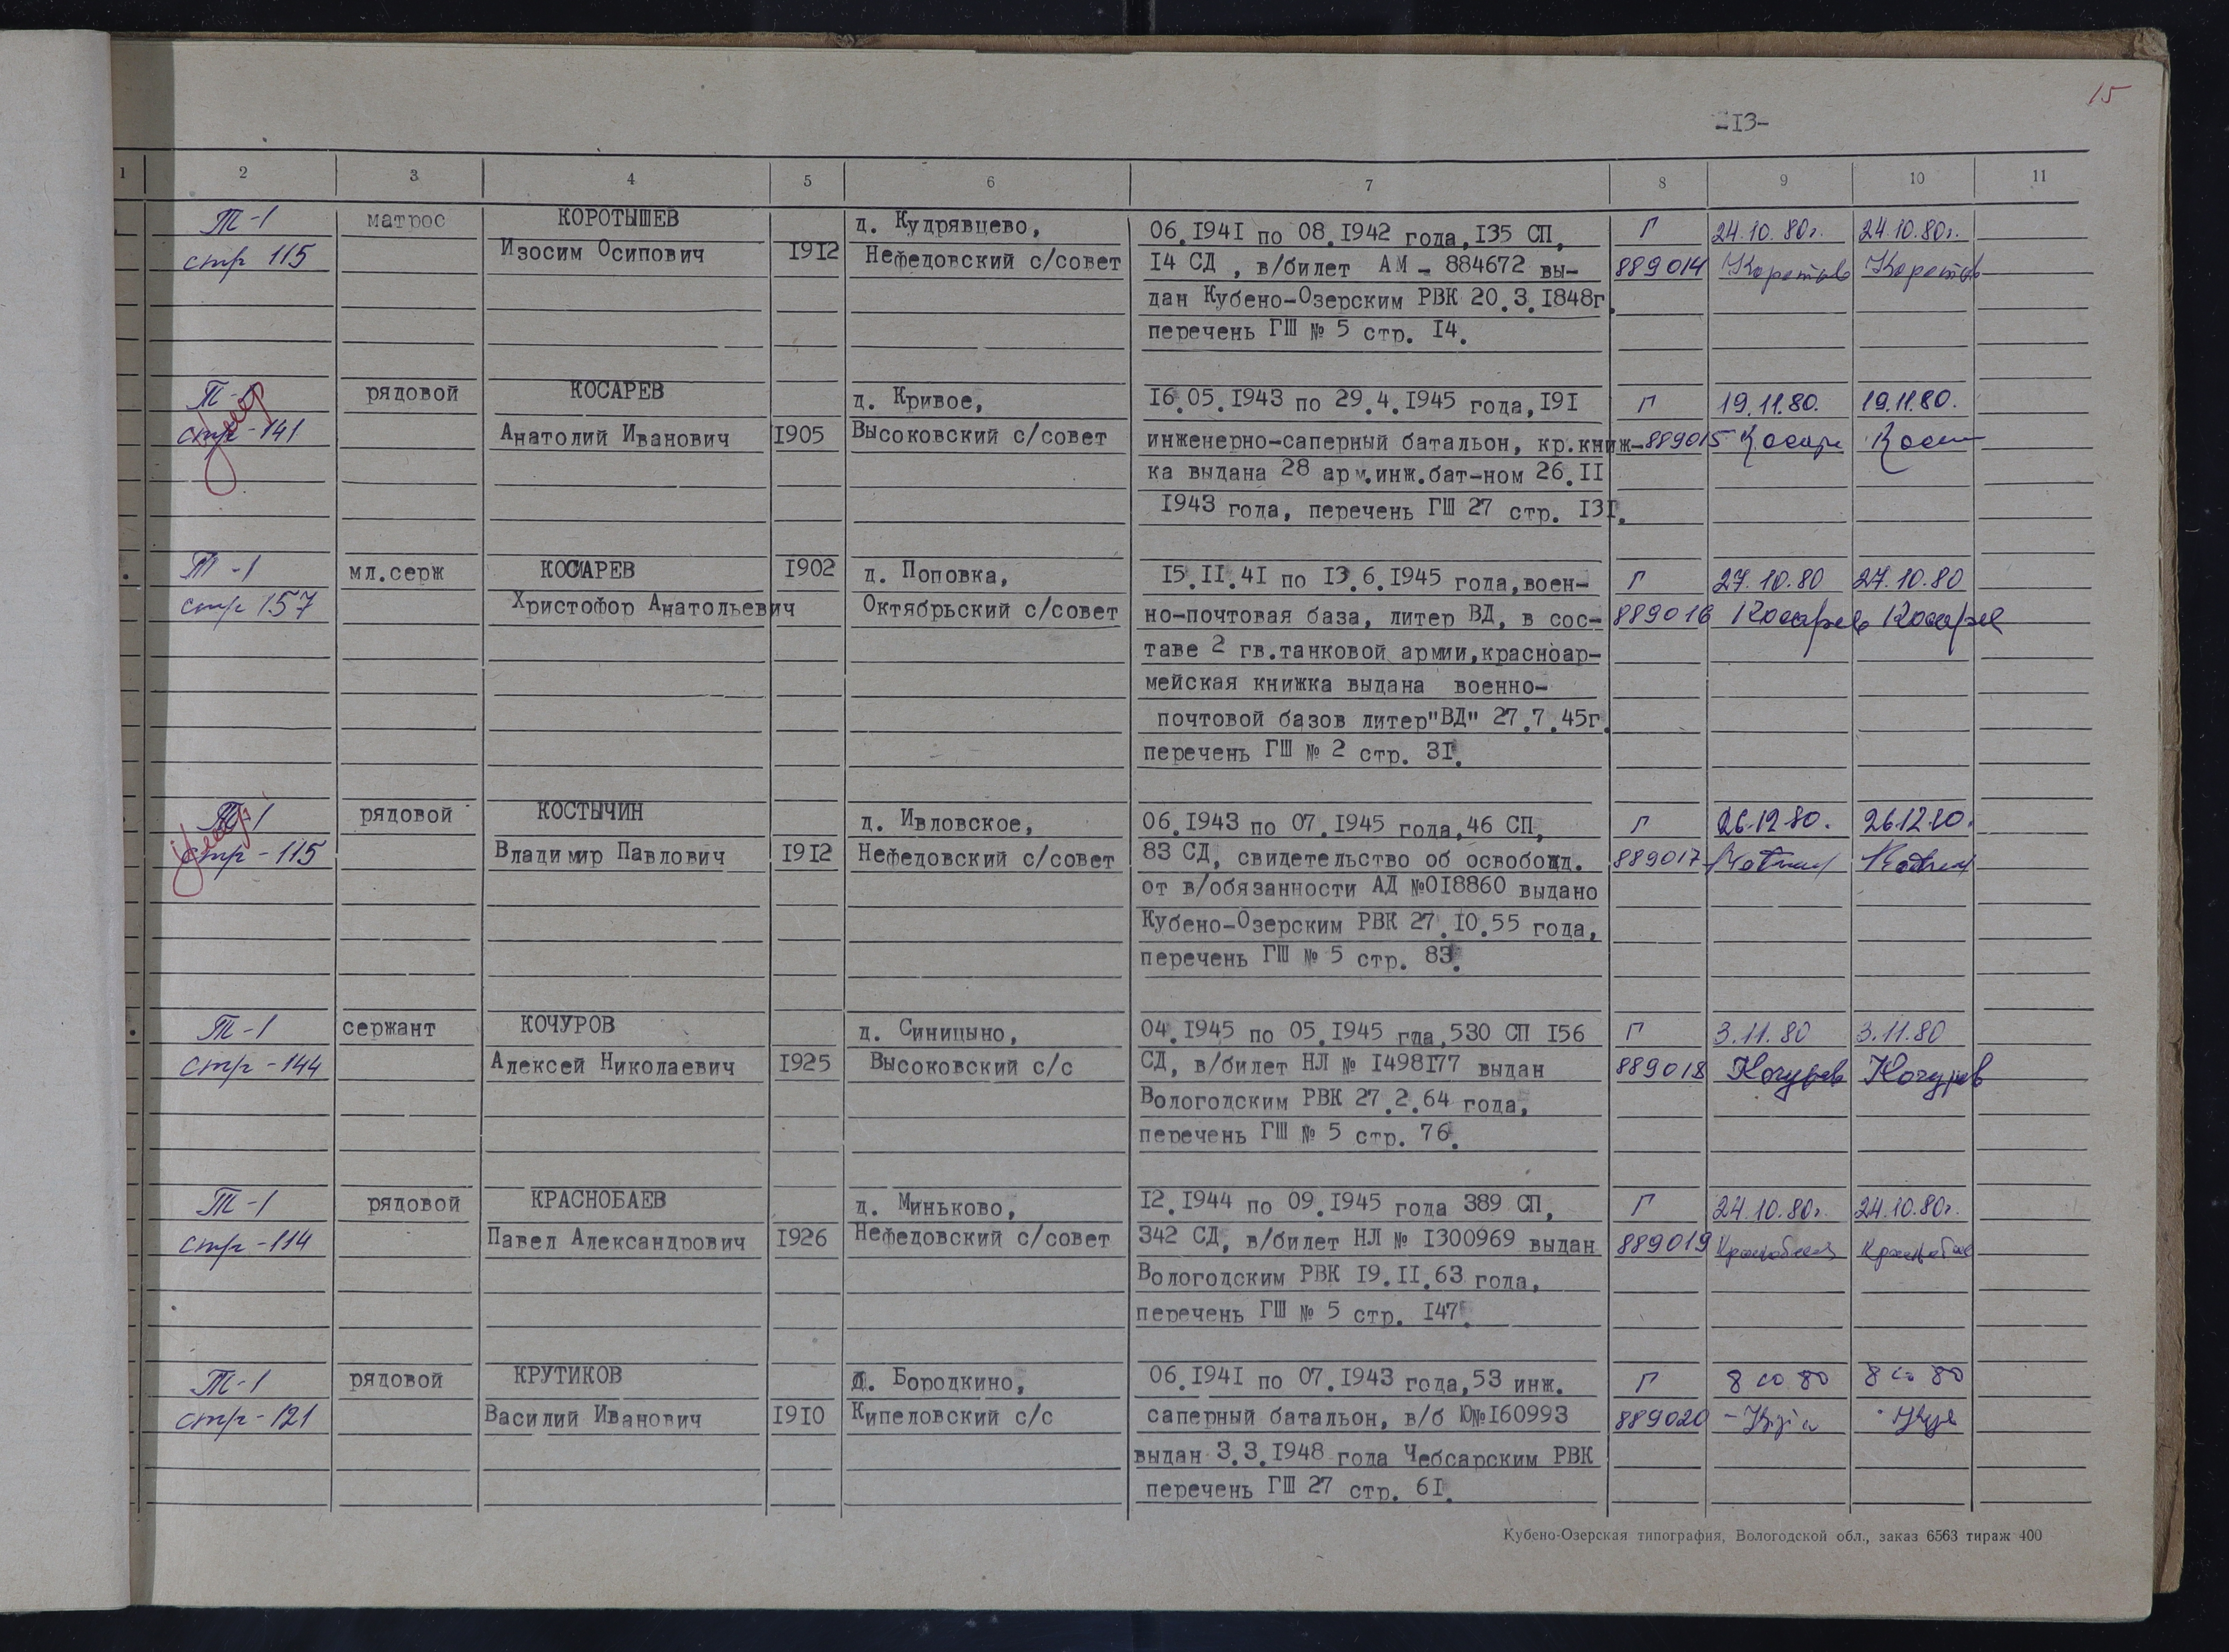 15
-13-
1 2 3 4 5 6 7 8 9 10 11
Т-1 матрос КОРОТЫШЕВ д. Кудрявцево, 06.1941 по 08.1942 года,135 СП, Г 24.10.80г. 24.10.80г.
стр 115 Изосим Осипович 1912 Нефедовский с/совет 14 СД , в/билет АМ - 884672 вы- 889014
дан Кубено-Озерским РВК 20.3.1848г.
перечень ГШ № 5 стр. 14.
Т-1 рядовой КОСАРЕВ д. Кривое, 16.05.1943 по 29.4.1945 года,191 Г 19.11.80. 19.11.80.
стр-141 Анатолий Иванович 1905 Высоковский с/совет инженерно-саперный батальон, кр.книж- 889015
умер
ка выдана 28 арм.инж.бат-ном 26.11
1943 года, перечень ГШ 27 стр. 131.
Т-1 мл.серж КОСАРЕВ 1902 д. Поповка, 15.11.41 по 13.6.1945 года,воен- Г 27.10.80 27.10.80
стр 157 Христофор Анатольевич Октябрьский с/совет но-почтовая база, литер ВД, в сос- 889016 Косарев Косарев
таве 2 гв.танковой армии,красноар-
мейская книжка выдана военно-
почтовой базов литер"ВД" 27.7.45г.
перечень ГШ № 2 стр. 31.
Т-1 рядовой КОСТЫЧИН д. Ивловское, 06.1943 по 07.1945 года,46 СП, Г 26.12.80. 26.12.80.
стр-115 Владимир Павлович 1912 Нефедовский с/совет 83 СД, свидетельство об освобожд. 889017
умер
от в/обязанности АД №018860 выдано
Кубено-Озерским РВК 27.10.55 года,
перечень ГШ № 5 стр. 83.
Т-1 сержант КОЧУРОВ д. Синицыно, 04.1945 по 05.1945 гда,530 СП 156 Г 3.11.80 3.11.80
стр-144 Алексей Николаевич 1925 Высоковский с/с СД, в/билет НЛ № 1498177 выдан 889018 Кочуров Кочуров
Вологодским РВК 27.2.64 года,
перечень ГШ № 5 стр. 76.
Т-1 рядовой КРАСНОБАЕВ д. Миньково, 12.1944 по 09.1945 года 389 СП, Г 24.10.80г. 24.10.80г.
стр-114 Павел Александрович 1926 Нефедовский с/совет 342 СД, в/билет НЛ № 1300969 выдан 889019
Вологодским РВК 19.11.63 года,
перечень ГШ № 5 стр. 147.
Т-1 рядовой КРУТИКОВ д. Бородкино, 06.1941 по 07.1943 года,53 инж. Г
стр-121 Василий Иванович 1910 Кипеловский с/с саперный батальон, в/б Ю№160993 889020
выдан 3.3.1948 года Чебсарским РВК
перечень ГШ 27 стр. 61.
Кубено-Озерская типография, Вологодской обл., заказ 6563 тираж 400